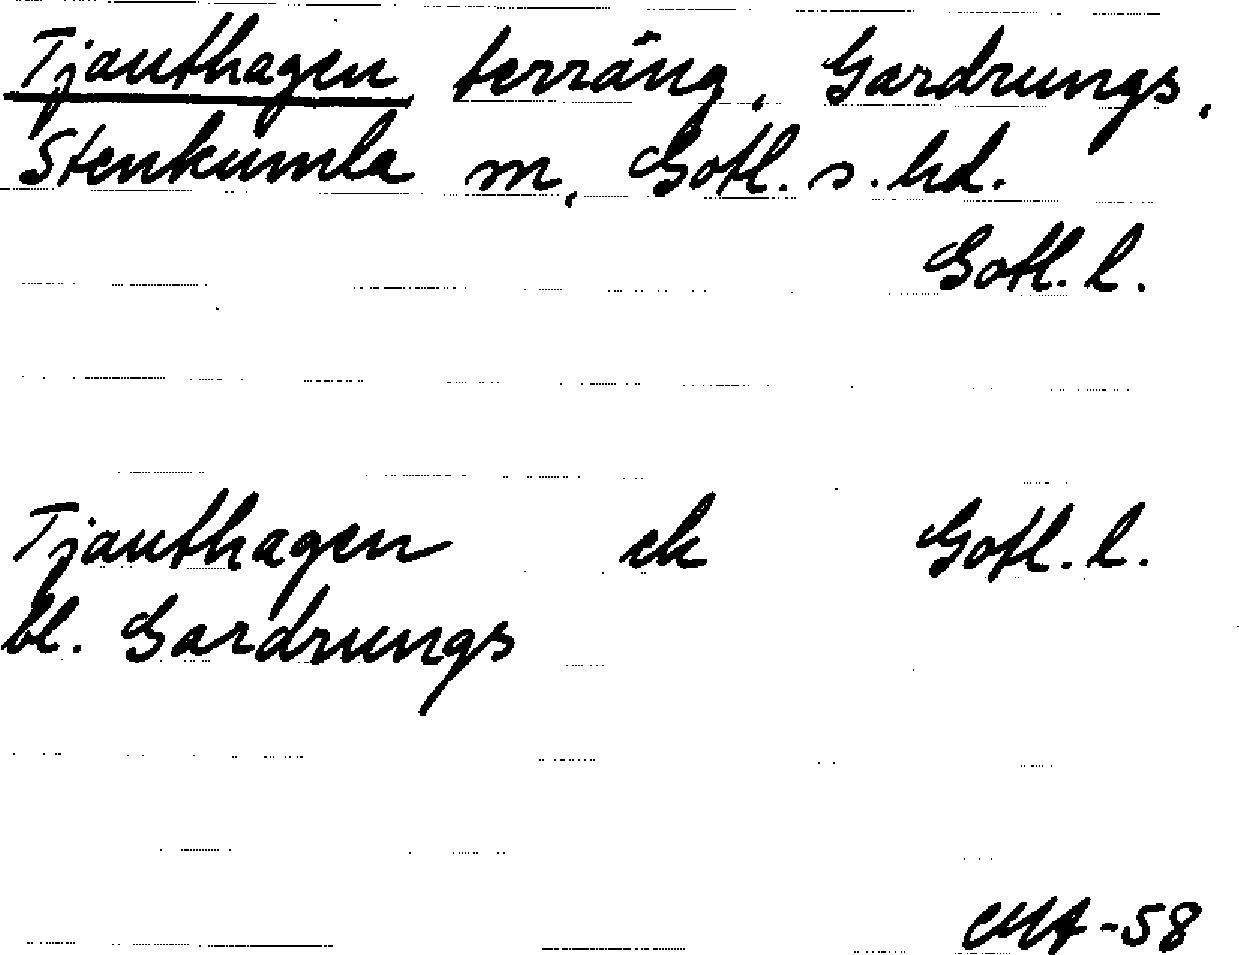 Tjauthagen terräng, Gardrungs,
Stenkumla m, Gotl. s. hd.
Gotl. l.
Tjauthagen ek Gotl. l.
bl. Gardrungs
CMA-58